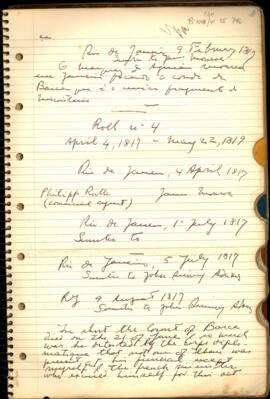 Rio de Janeiro 9 February 1817
Sumter to James Monroe
O marquez de Aguiar morreu
em Janeiro ficando o conde da
Barca que é o unico fragmento de
ministerio
Roll nº 4
April 4, 1817 - May 22, 1819
Rio de Janeiro, 4 April, 1817
Philipp Rutte James Monroe
(commercial agent)
Rio de Janeiro, 1º July 1817
Sumter to
Rio de Janeiro, 5 July 1817
Sumter to John Quincy Adams
RJ 9 August 1817
Sumter to John Quincy Adams
In short the Count of Barca
died on the 21 of June & so much
was he detested by the corps diplo-
matique that not one of them was
present at his funeral except
myself & the french minister
was excused himself for this act